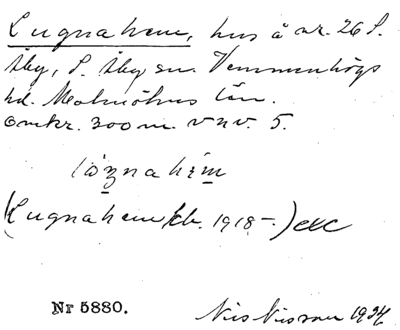 Lugnahem, hus å nr. 26 S.
Åby, S. Åby sn. Vemmenhögs
hd. Malmöhus län.
Omkr. 300 m. v n v. 5.
hém
(Lugnahem kb. 1918-) EC
Nr 5880.
Nils Nilsson 1934